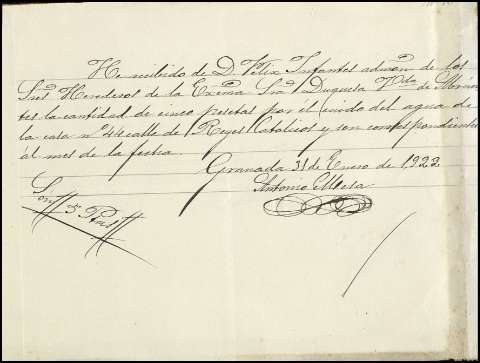 He recibido de D. Felix Infantes admon de los
Sres Herederos de la Excma Sra Duquesa Vda de
tes la cantidad de cinco pesetas por el cuido del agua de
la casa nº 44 calle de Reyes Catolicos y son correspondientes
al mes de la fecha.
Granada 31 de Enero de 1,922
Antonio Mesa
Son
5 Ptas